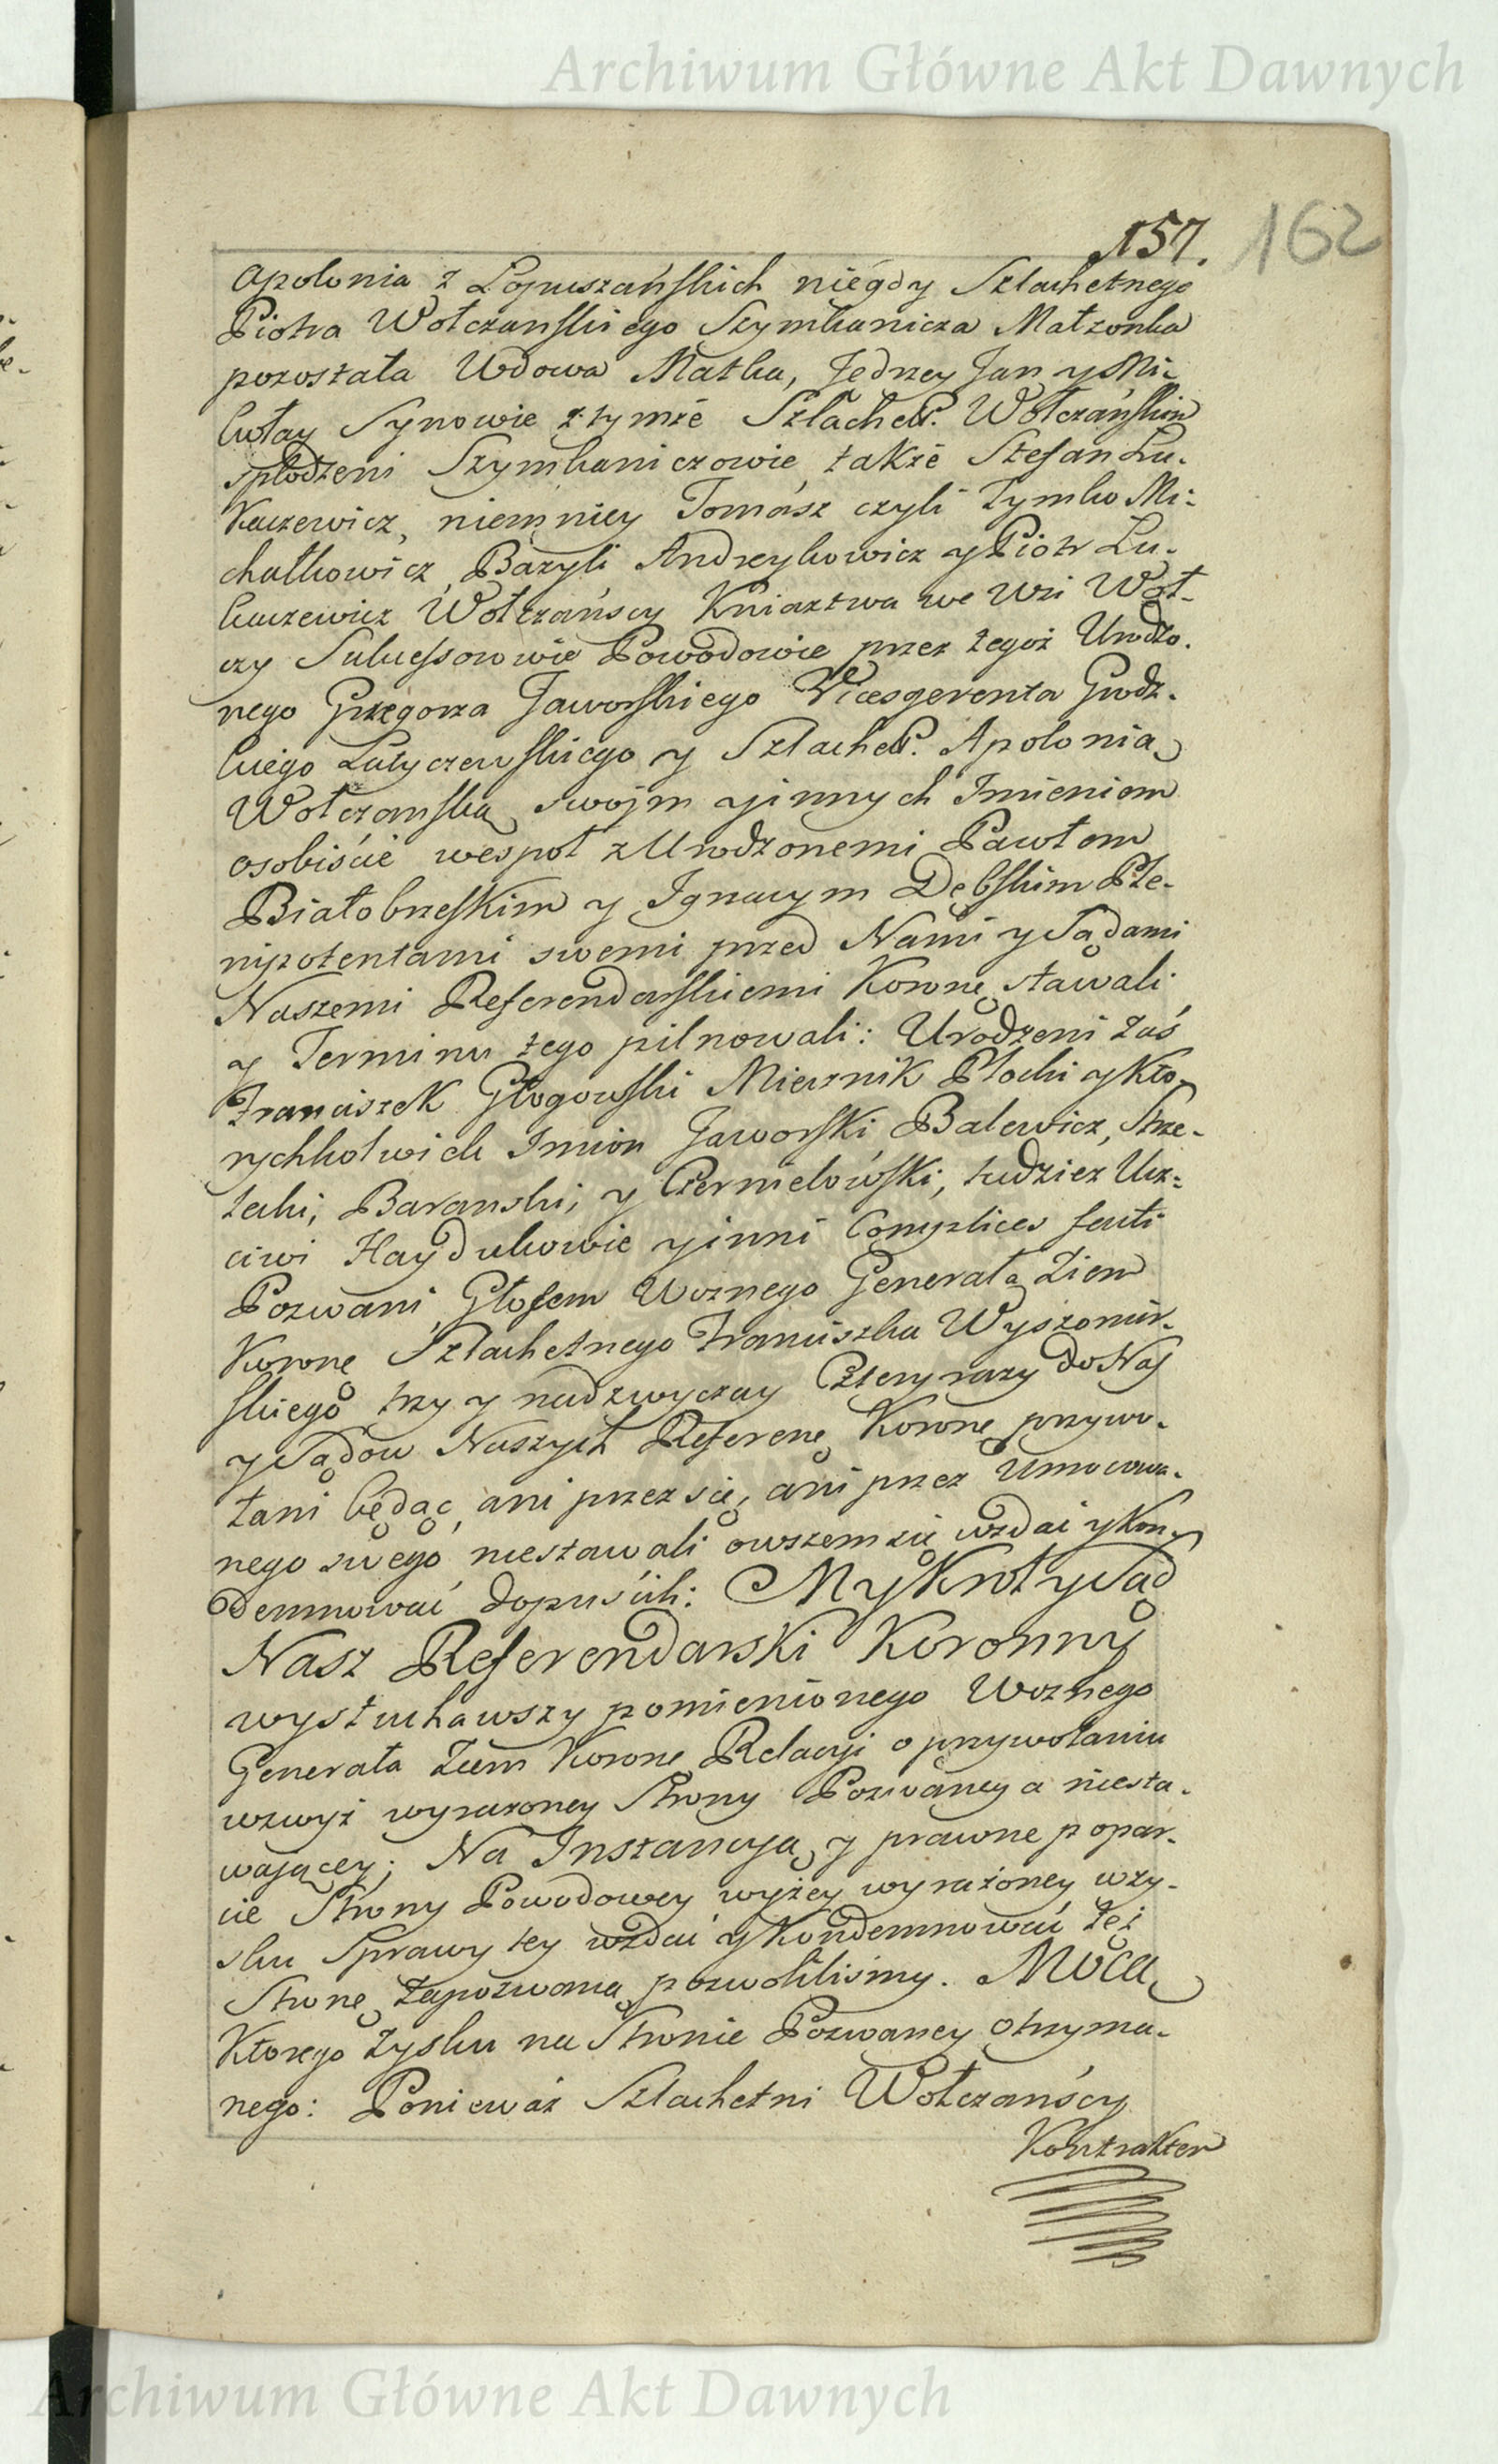 Archiwum Główne Akt Dawnych
157. 162
Apolonia z Łopuszańskich niegdy Szlachetnego
Piotra Wołczanskiego Szymkanicza Małzonka
pozostała Wdowa Matka, Jędrzey Jan y Mi-
kołay Synowie z tymże Szlachet. Wołczańskim
spłodzeni Szymkaniczowie, także Stefan Lu-
kaczewicz, niemniey Tomász czyli Tymko Mi-
chałkowicz, Bazyli Andrzykowicz y Piotr Lu-
kaczewicz Wołczańscy Kniaztwa we Wsi Woł-
czy Sukcessorowie Powodowie przez tegoż Urodzo-
nego Grzegorza Jaworskiego Vicesgerenta Grodz-
kiego Latyczewskiego y Szlachet. Apolonią
Wołczanską swoim y innych Imieniem
osobiście wespoł z Urodzonemi Pawłem
Białobrzeskim y Ignacym Dębskim Ple-
nipotentami swemi przed Nami y Sądami
Naszemi Referendarskiemi Koronę stawali
y Terminu tego pilnowali: Urodzeni zaś
Franciszek Głogowski Miecznik Płocki y Kto-
rychkolwiek Imion Jaworski Balewicz, Strze-
lecki, Baranski, y Czermelowski, tudziez Ucz-
ciwi Haydukowie y inni Complices facti
Pozwani, Głosem Woznego Generała Ziem
Koronę Szlachetnego Franciszka Wyszomir-
skiego trzy y nadzwyczay Cztery razy do Nas
y Sądow Naszych Referenę Koronę przywo-
łani będąc, ani przez się, ani przez Umocowa-
nego swego niestawali owszem się wzdać y Kon-
demnować dopuścili: My Krol y Sąd
Nasz Referendarski Koronny
wysłuchawszy pomienionego Woznego
Generała Ziem Koronę Relacyi o przywołaniu
wzwyż wyrazoney Strony Pozwaney a niesta-
waiącey; Na Instancyą y prawne popar-
cie Strony Powodowey wyżey wyrażoney w zy-
sku Sprawy tey wzdać y Kondemnować też
Stronę Zapozwaną pozwoliliśmy. Mocą
Ktorego Zysku na Stronie Pozwaney otrzyma-
nego: Ponieważ Szlachetni Wołczańscy
Kontraktem
Archiwum Główne Akt Dawnych